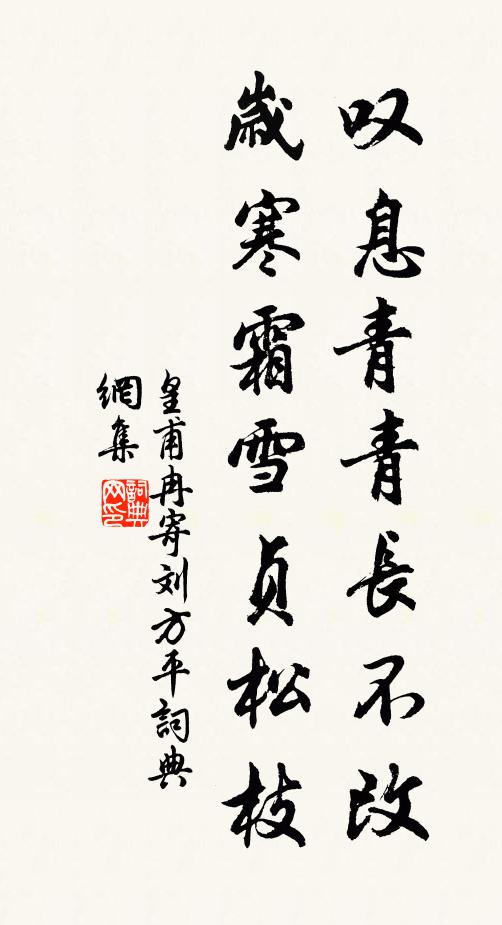 叹息青青長不改
歲寒霜雪贞松枝
皇甫冉寄刘方平詞典
網集
詞典网印